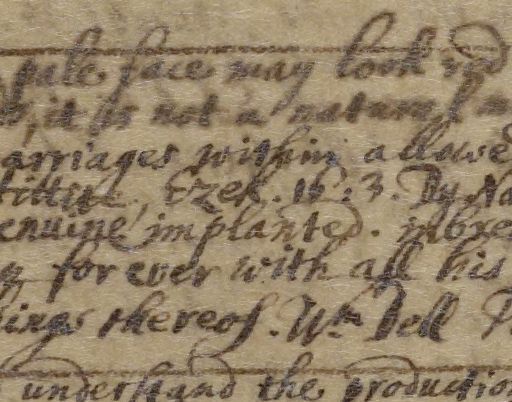 pale face may look red
it is not a natural
arriages within allowed
Hittite, Ezek. 16:3. By Na
enuine, implanted. inbre
for ever with all his
ings thereof. Wm Dell
understand the production